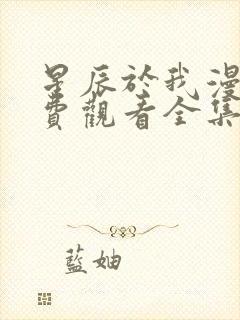 星辰於我漫
費觀看全集
藍妯